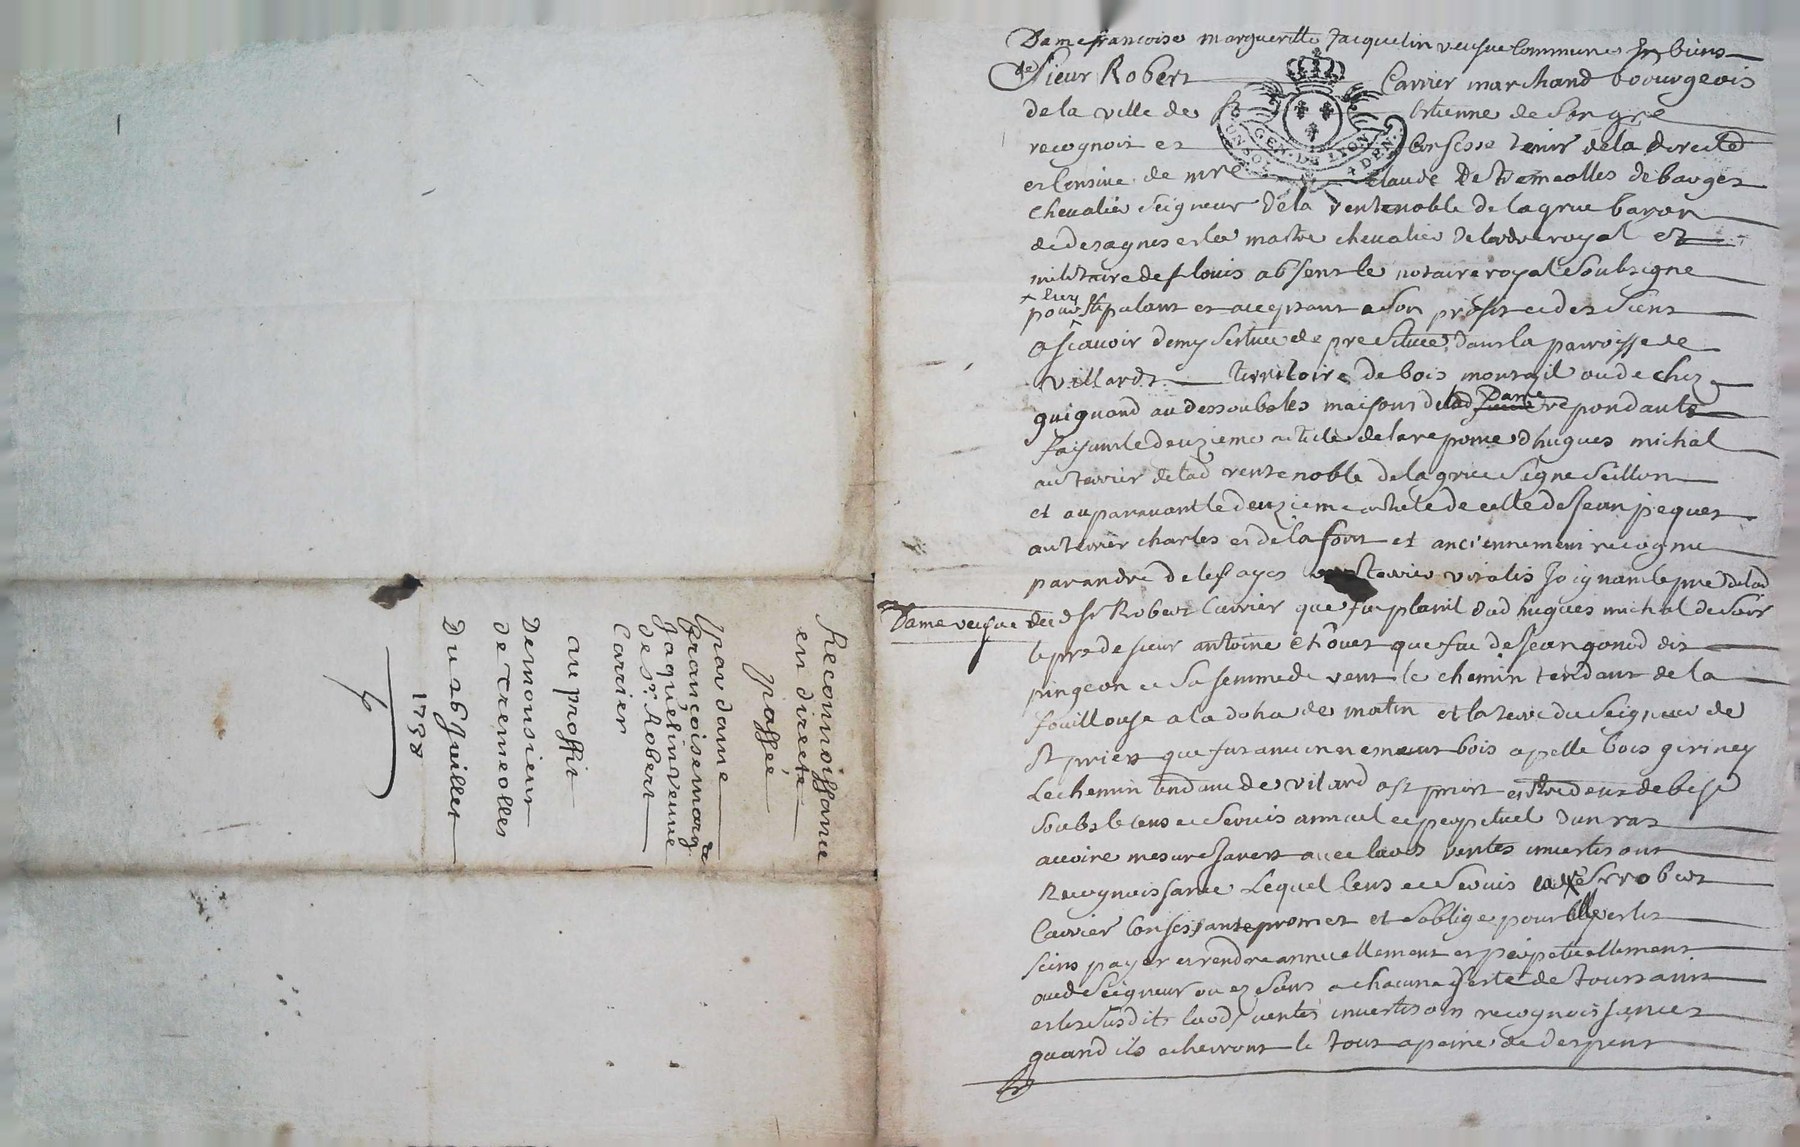 Reconnoissance
en directe
passée
par dame
françoise marg.te
Jaquelin veuve
de Sr. Robert
Carrier
au proffit
De monsieur
de Tremeolles
Du 26 Juillet
1738
Dame francoise margueritte Jacquelin veufue Commune En biens
de Sieur Robert Carrier marchand bourgeois
de la ville de St Etienne de Son gré
recognoit et Confesse tenir de la directe
et Censive de mre Claude De Tremeolles de barges
chevalier Seigneur de la rente noble de la grue baron
de desagnes et la mastre chevalier de lordre royal et
militaire de St louis absent le notaire royal Soubsigne
pour luy Stipulant et acceptant a Son profit et des Siens
a Scavoir demy Sertiue de pre Situee dans la parroisse de
villards territoire de bois monzil ou de chez
guignand au dessoubs les maisons de lad Dame repondante
faisant le deuzieme article de la reponce dhugues michal
au terrier de lad rente noble de la grue Signe Seillon
et auparavant le deuzieme article de celle de Jean pequet
au terrier charles et de la font et anciennement recognu
par andre de lesfayes terrier vitalis Joignant le pre de lad
Dame veufue dud Sr Robert Carrier que fut planil dud hugues michal de Soir
le pre de Sieur antoine Chôuet que fut de Jean gonod dit
pingeon et Sa femme de vent le chemin tendant de la
fouillouse a la doha de matin et la terre du Seigneur de
St priest que fut anciennement bois apelle bois giriney
Le chemin tendant de vilard a St priest entredeux de bise
Soubs le Cens et Servis annuel et perpetuel dun ras
avoine mesure forest avec laods ventes investisons
Recognoissance Lequel Cens et Servis Sr robert
Carrier Confessante promet et Soblige pour elle et les
Siens payer et rendre annuellement et perpetuellement
aud Seigneur ou ez Siens a chacune feste de toussaint
et les Susdits laods ventes investisons recognoissances
quand ils echerront le tout a peine de depens